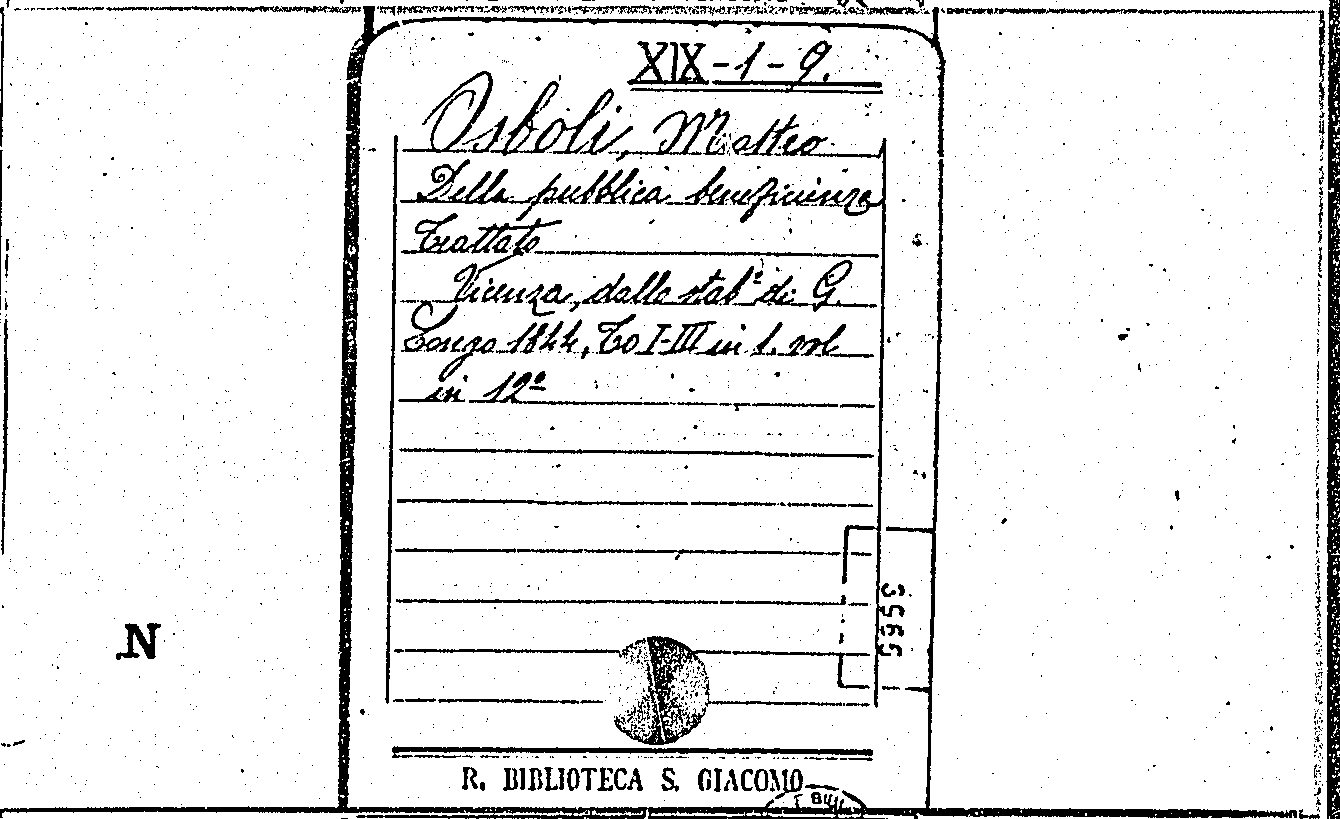 XIX-1-9.
Osboli, Matteo
Della pubblica beneficienza
Trattato
Vicenza, dallo stabº di G.
Longo 1844, To I-III in 1. vol
in 12º
3565
N
R. BIBLIOTECA S. GIACOMO